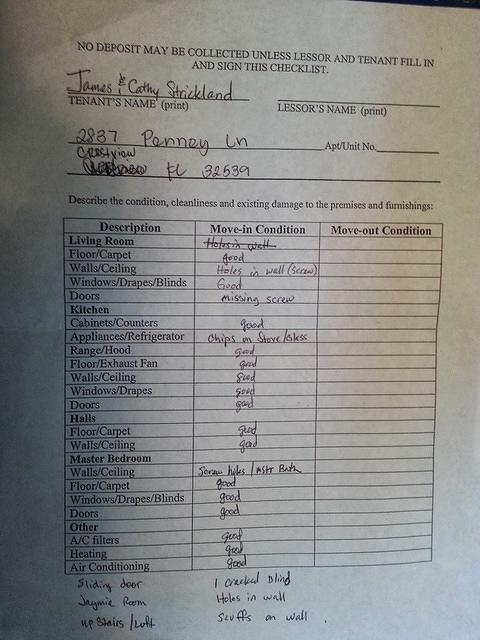 NO DEPOSIT MAY BE COLLECTED UNLESS LESSOR AND TENANT FILL IN
AND SIGN THIS CHECKLIST.
James & Cathy Strickland
TENANT'S NAME (print) LESSOR'S NAME (print)
2837 Penney Ln Apt/Unit No.
Crestview
FL 32539
Describe the condition, cleanliness and existing damage to the premises and furnishings:
Description Move-in Condition Move-out Condition
Living Room Holes in wall
Floor/Carpet good
Walls/Ceiling Holes in wall (screw)
Windows/Drapes/Blinds Good
Doors missing screw
Kitchen
Cabinets/Counters good
Appliances/Refrigerator Chips on Stove/Glass
Range/Hood good
Floor/Exhaust Fan good
Walls/Ceiling good
Windows/Drapes good
Doors good
Halls
Floor/Carpet good
Walls/Ceiling good
Master Bedroom
Walls/Ceiling Screw holes / Mstr Bath
Floor/Carpet good
Windows/Drapes/Blinds good
Doors good
Other
A/C filters good
Heating good
Air Conditioning good
Sliding door 1 Cracked Blind
Jaymie Room Holes in wall
Upstairs/Loft Scuffs on wall